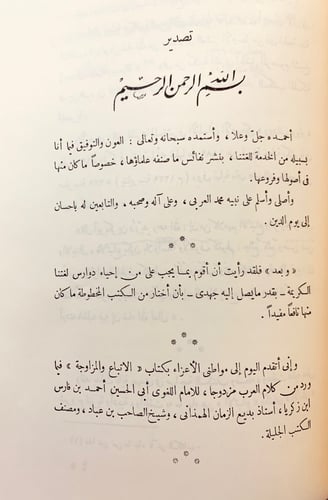 تصدير
بسم الله الرحمن الرحيم
أحمده جلّ وعلا، وأستمده سبحانه وتعالى: العون والتوفيق فيما أنا
بسبيله من الخدمة للغتنا، بنشر نفائس ما صنفه علماؤها، خصوصاً ما كان منها
في أصولها وفروعها.
وأصلى وأسلم على نبيه محمد العربى، وعلى آله وصحبه، والتابعين له بإحسان
إلى يوم الدين.
* * *
« وبعد » فلقد رأيت أن أقوم بما يجب على من إحياء دوارس لغتنا
الكريمة ــ بقدر ما يصل إليه جهدى ــ بأن أختار من الكتب المخطوطة ما كان
منها نافعاً مفيداً.
* * *
وإنى أتقدم اليوم إلى مواطنى الأعزاء بكتاب « الاتباع والمزاوجة » فيما
ورد من كلام العرب مزدوجا، للامام اللغوى أبى الحسين أحمد بن فارس
ابن زكرياء، أستاذ بديع الزمان الهمذانى، وشيخ الصاحب بن عباد، ومصنف
الكتب الجليلة.
* * *